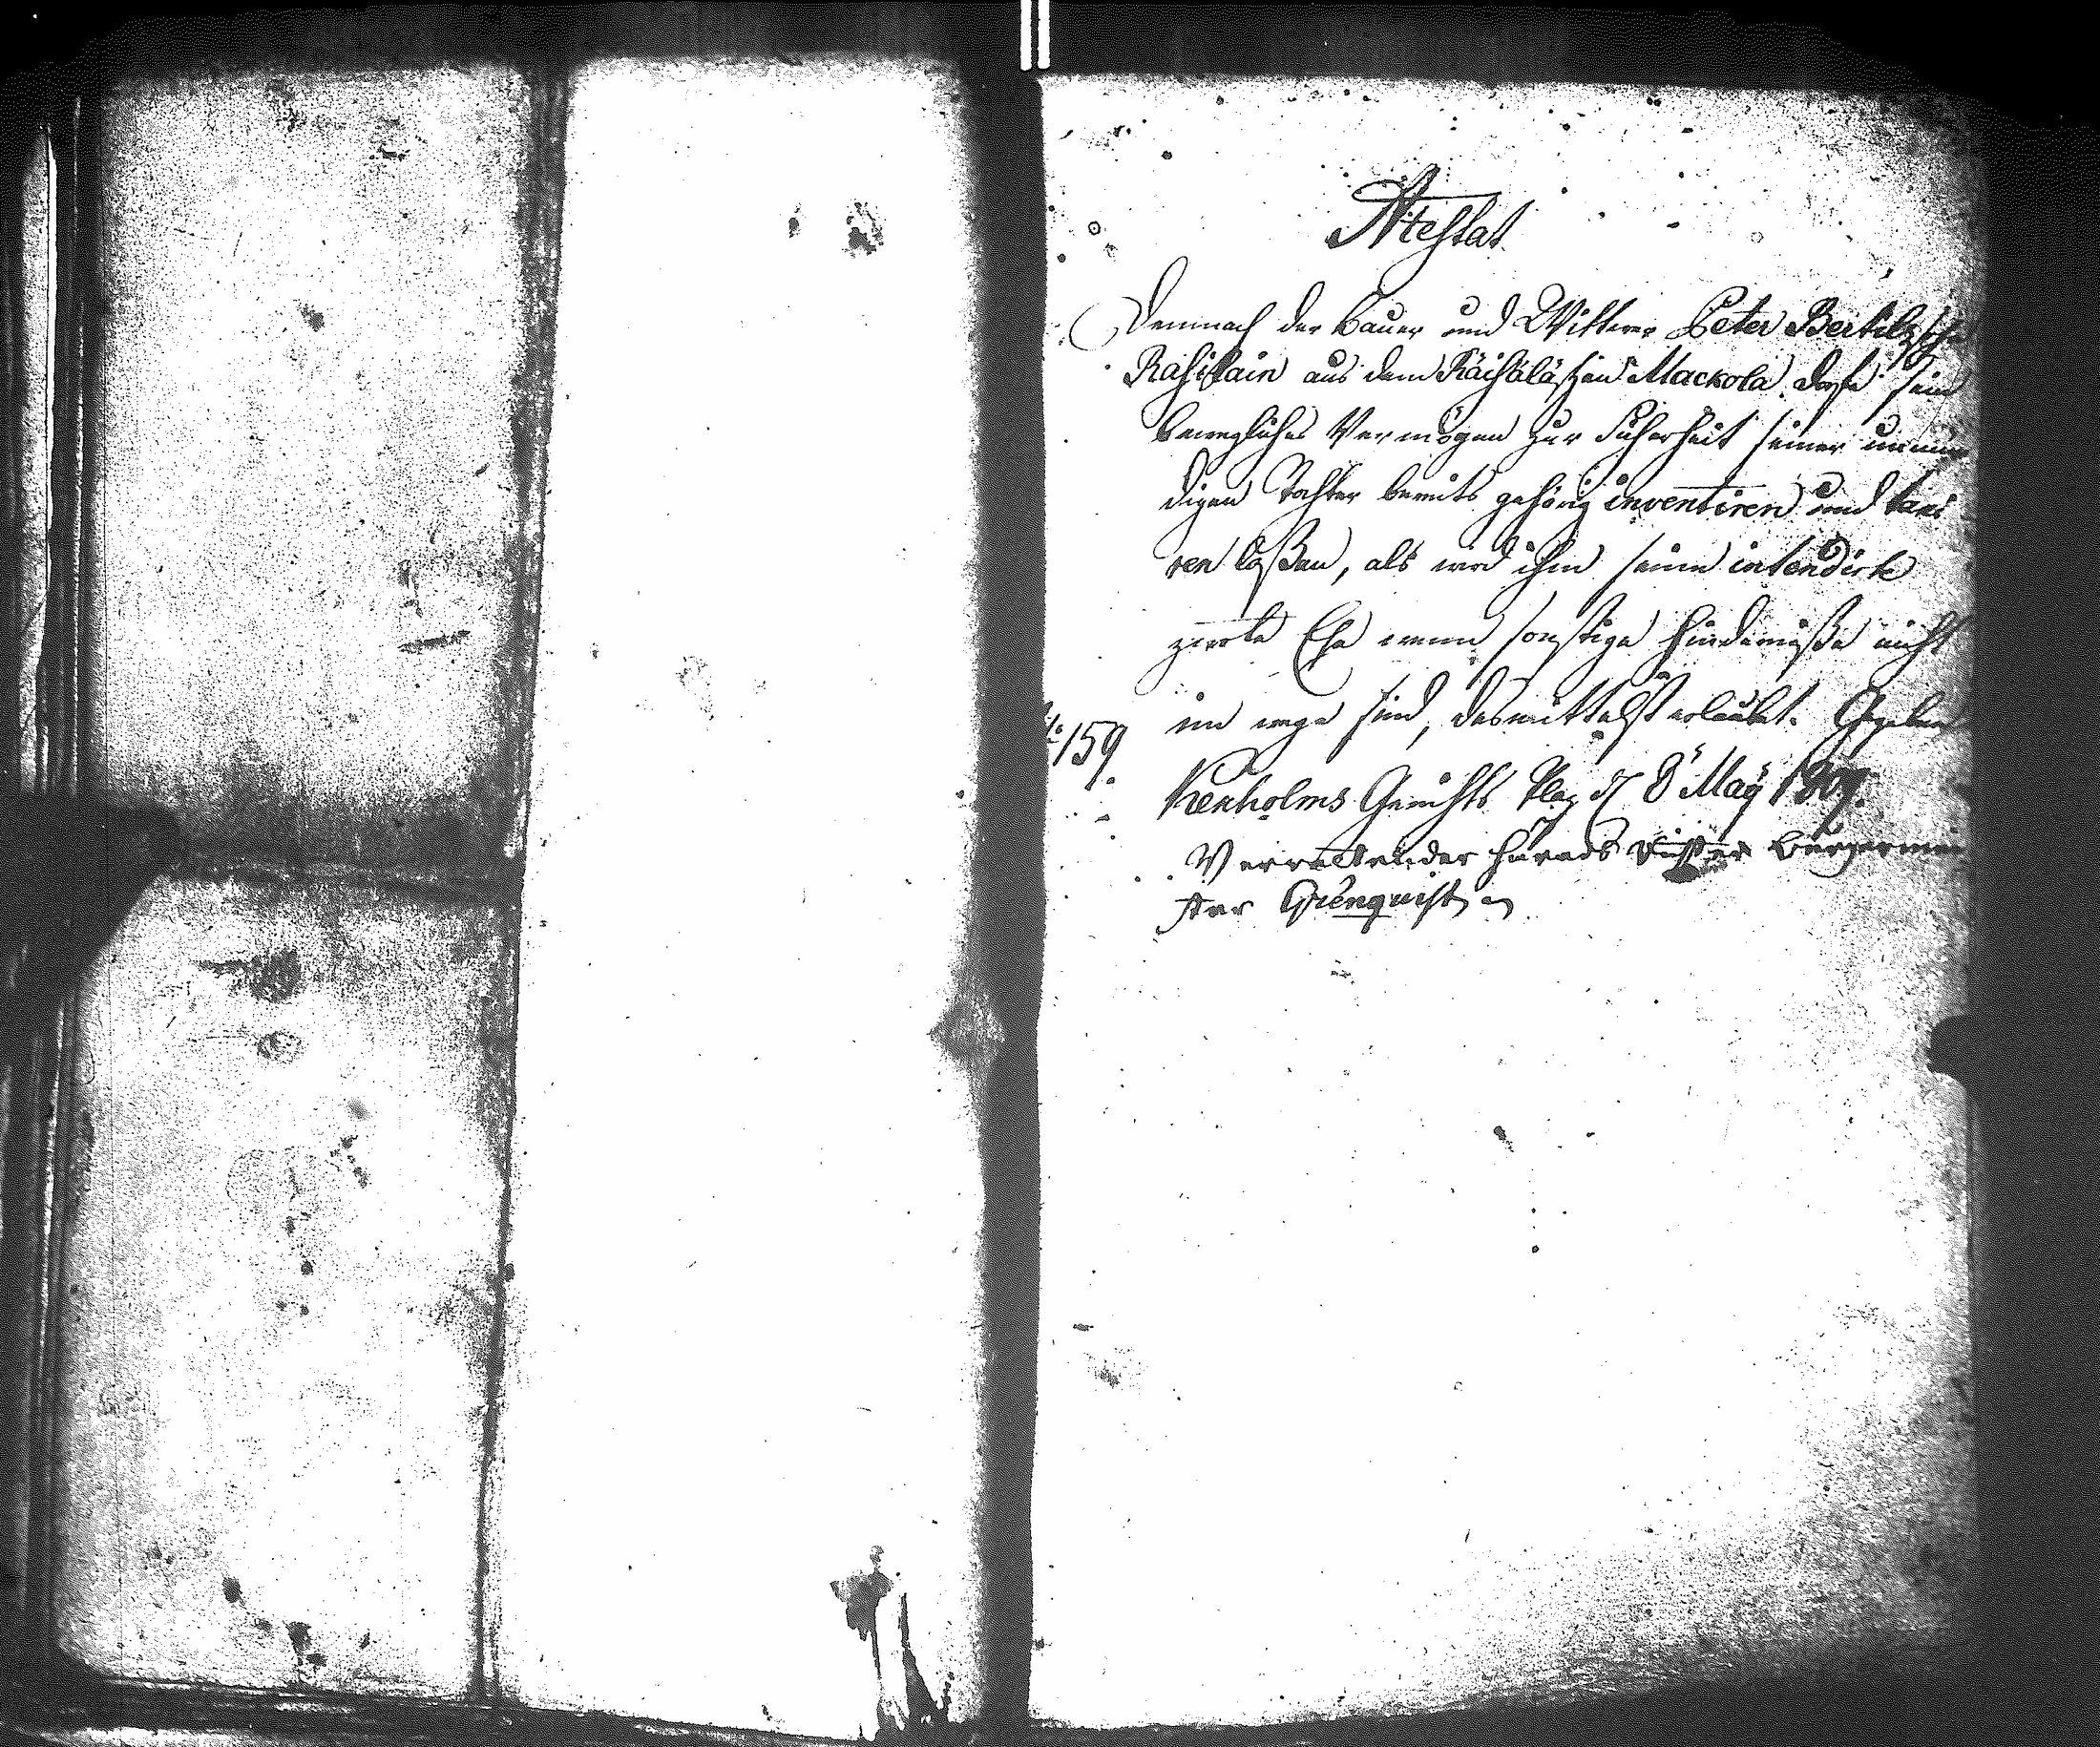 Attestat
Demnach der Bauer und Wittwer Peter Bertilssohn
Rasikain aus dem Räisäläschen Mackola dorfe sein
bewegliches Vermögen zur Sicherheit seiner unmün
digen Tochter bereits gehörig inventiren und taxi
ren laßen, als wird ihm seine intendirte
zweite Ehe wenn sonstige Hinderniße nicht
im wege sind, desmittelst erlaubt. Gegeben
No 159
Kexholms Gerichts Plaz d 8 May 1807.
Verwaltender Härads Richter Bürgermei
ster Grenquist